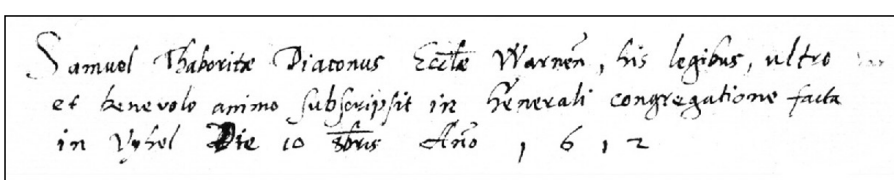 Samuel Thaboritæ Diaconus Eccłæ Warnēn, his legibus, ultro
et benevolo animo subscripsit in Generali congregatione facta
in Vyhel Die 10 8bris Año 1612